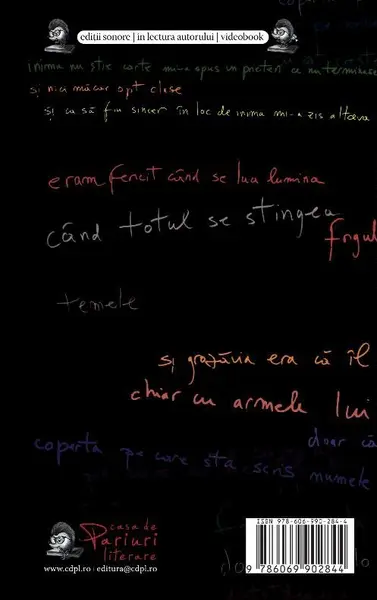 ediții sonore | in lectura autorului | videobook
inima nu știe carte mi-a spus un prieten ce nu terminase
și nici măcar opt clase
și ca să fiu sincer în loc de inima mi-a zis altceva
eram fericit când se lua lumina
când totul se stingea
frigul
temele
și grozăvia era că îl
chiar cu armele lui
doar că
coperta pe care sta scris numele
casa de
Pariuri
literare
www.cdpl.ro | editura@cdpl.ro
ISBN 978-606-990-284-4
9 786069 902844